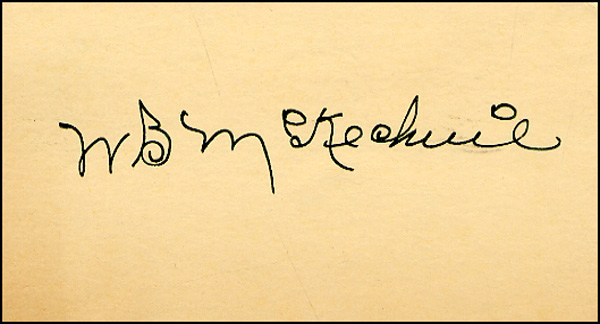 W B McKechnie